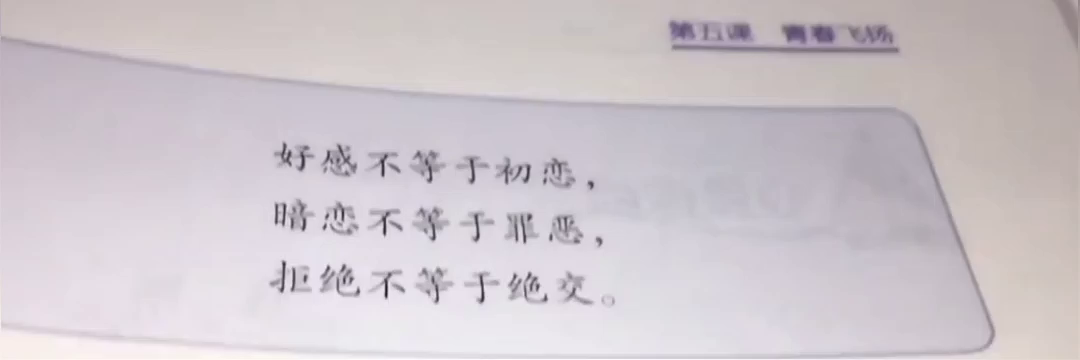 第五课 青春飞扬
好感不等于初恋，
暗恋不等于罪恶，
拒绝不等于绝交。